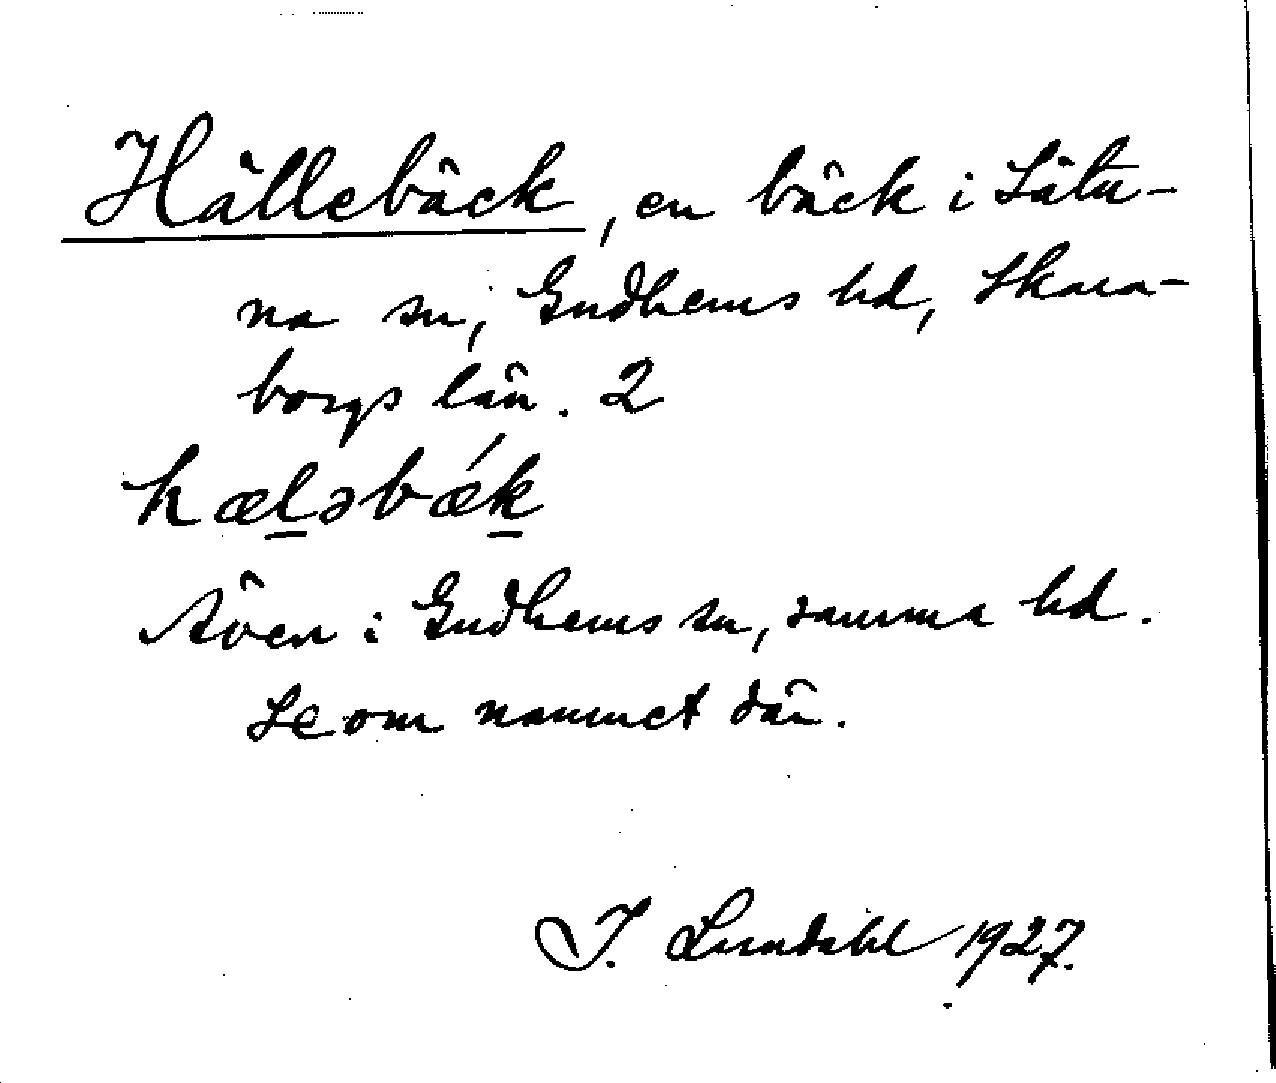 Hällebäck, en bäck i Sätu-
na sn, Gudhems hd, Skara-
borgs län. 2
hæləbǽk
Även i Gudhems sn, samma hd.
Se om namnet där.
I. Lundahl 1927.